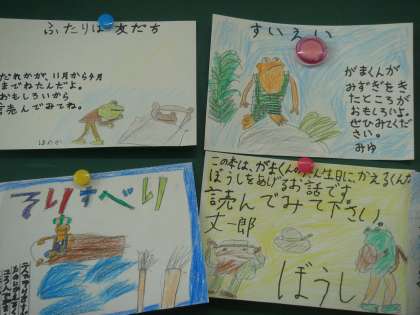 ふたりは友だち
だれかが、11月から4月
までねたんだよ。
おもしろいから
読んでみてね。
ほのか
すいえい
がまくんが
みずぎをき
たところが
おもしろいよ。
ぜひみてくだ
さい。
みゆ
そりすべり
この本は、がまくんのたん生日に、かえるくんが
ぼうしをあげるお話です
読んでみて下さい
丈一郎
ぼうし